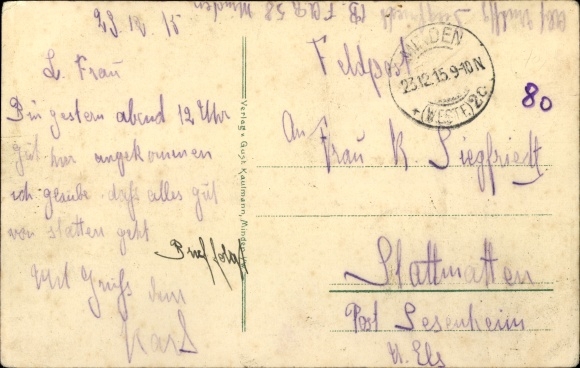 23. 12. 15
L. Frau
Bin gestern abend 12 Uhr
gut hir angekommen
ich glaube daß alles gut
von statten geht
Brief folgt
Mit Gruß dein
Karl
Verlag v. Gust. Kaufmann, Minden
Siegfriedt
Minden
MINDEN
23.12.15.9-10N
* (WESTF.) 2c
Feldpost
80
An
Frau K Siegfriedt
Stattmatten
Post Sesenheim
U. Els